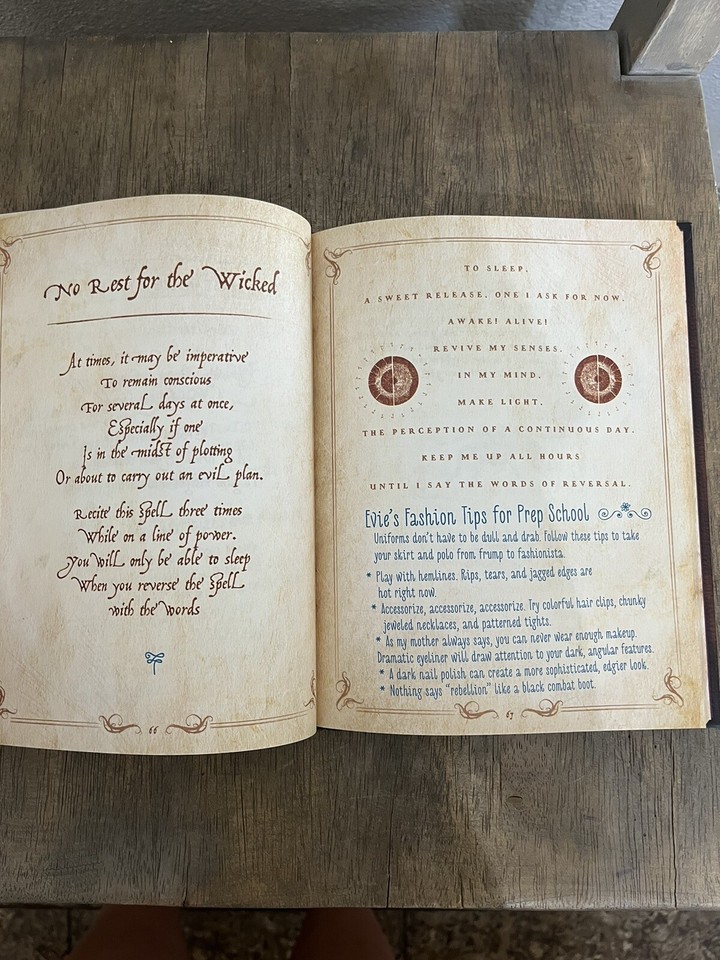 No Rest for the Wicked
At times, it may be imperative
To remain conscious
For several days at once,
Especially if one
Is in the midst of plotting
Or about to carry out an evil plan.
Recite this spell three times
While on a line of power.
You will only be able to sleep
When you reverse the spell
with the words
66
TO SLEEP,
A SWEET RELEASE, ONE I ASK FOR NOW.
AWAKE! ALIVE!
REVIVE MY SENSES.
IN MY MIND,
MAKE LIGHT,
THE PERCEPTION OF A CONTINUOUS DAY.
KEEP ME UP ALL HOURS
UNTIL I SAY THE WORDS OF REVERSAL.
Evie's Fashion Tips for Prep School
Uniforms don't have to be dull and drab. Follow these tips to take
your skirt and polo from frump to fashionista.
* Play with hemlines. Rips, tears, and jagged edges are
hot right now.
* Accessorize, accessorize, accessorize. Try colorful hair clips, chunky
jeweled necklaces, and patterned tights.
* As my mother always says, you can never wear enough makeup.
Dramatic eyeliner will draw attention to your dark, angular features.
* A dark nail polish can create a more sophisticated, edgier look.
* Nothing says "rebellion" like a black combat boot.
67